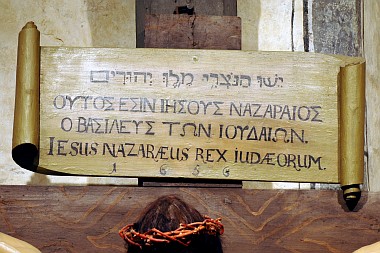 ישו הנצרי מלך יהודים
ΟΥΤΟΣ ΕΣΙΝ ΙΗΣΟΥΣ ΝΑΖΑΡΑΙΟΣ
Ο ΒΑΣΙΛΕΥΣ ΤΩΝ ΙΟΥΔΑΙΩΝ.
IESUS NAZARÆUS REX IUDÆORUM.